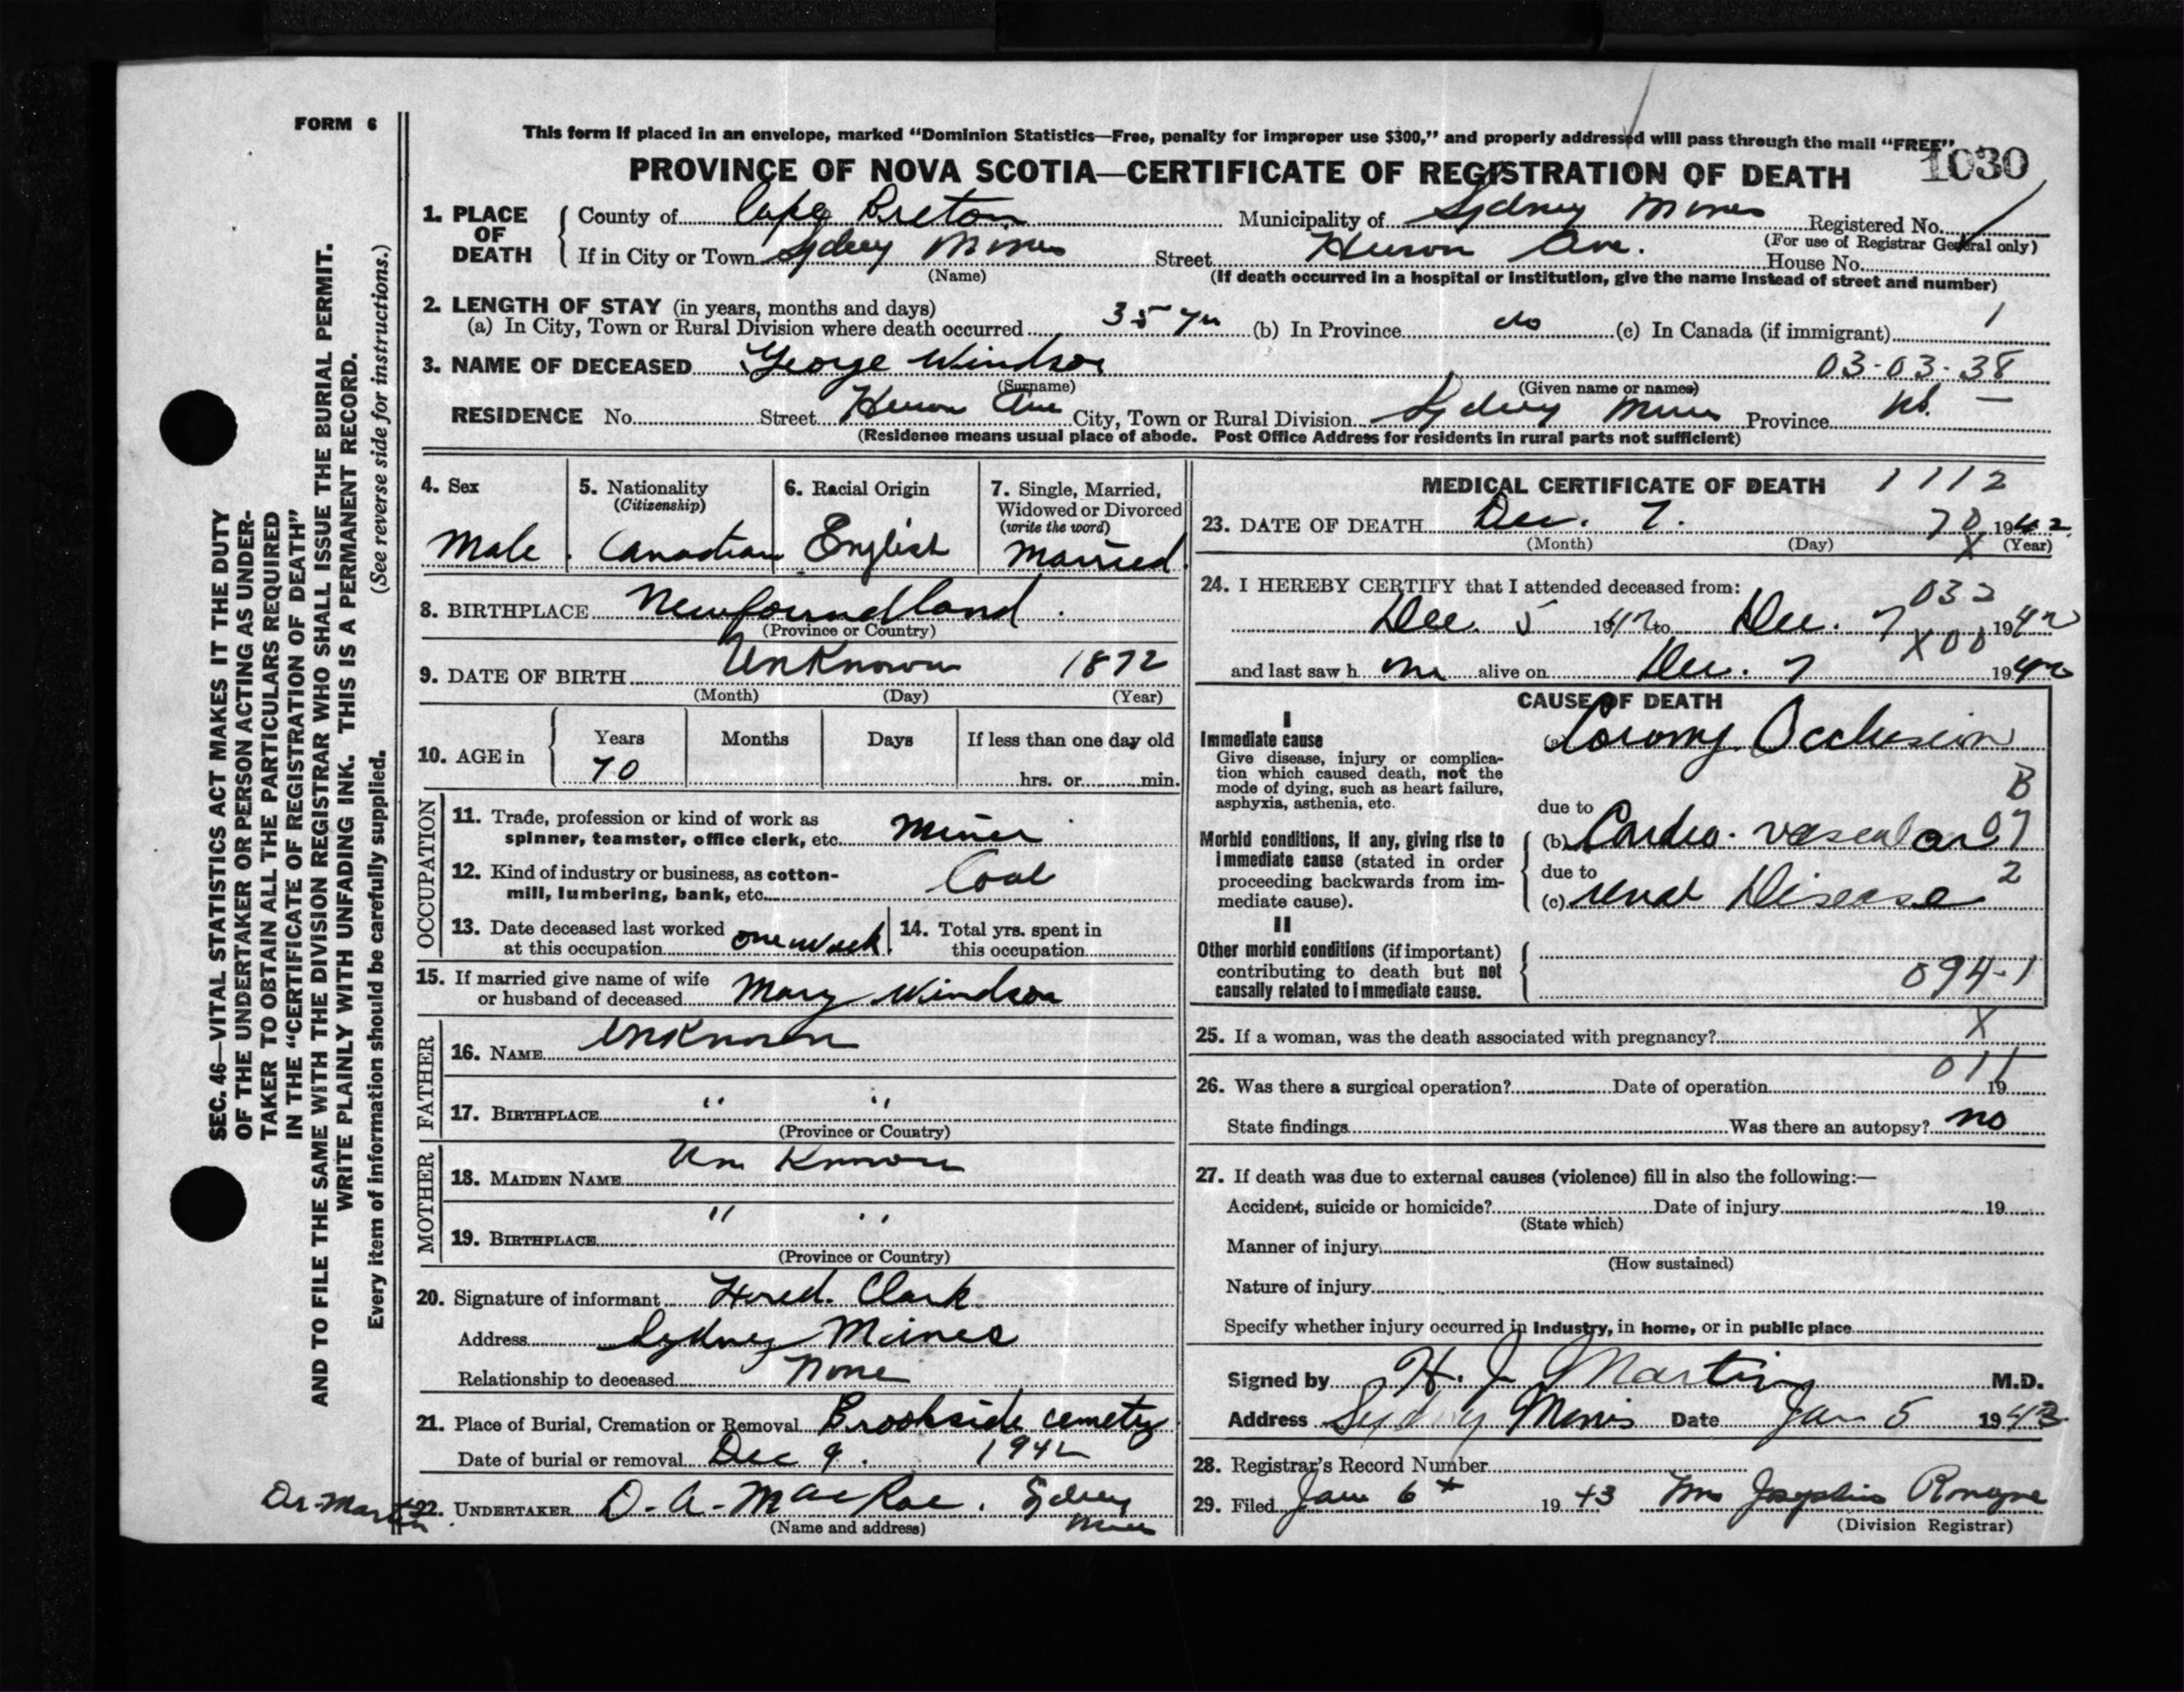 FORM 6
This form if placed in an envelope, marked “Dominion Statistics—Free, penalty for improper use $300,” and properly addressed will pass through the mail “FREE”
1030
PROVINCE OF NOVA SCOTIA—CERTIFICATE OF REGISTRATION OF DEATH
1. PLACE OF DEATH County of Cape Breton Municipality of Sydney Mines Registered No.
(For use of Registrar General only)
If in City or Town Sydney Mines Street Huron Ave. House No.
(Name) (If death occurred in a hospital or institution, give the name instead of street and number)
2. LENGTH OF STAY (in years, months and days)
(a) In City, Town or Rural Division where death occurred 35 yrs (b) In Province do (c) In Canada (if immigrant) 1
3. NAME OF DECEASED George Windsor 03-03-38
(Surname) (Given name or names)
RESIDENCE No. Street Huron Ave City, Town or Rural Division Sydney Mines Province NS. —
(Residence means usual place of abode. Post Office Address for residents in rural parts not sufficient)
4. Sex
Male
5. Nationality
(Citizenship)
Canadian
6. Racial Origin
English
7. Single, Married,
Widowed or Divorced
(write the word)
Married
8. BIRTHPLACE Newfoundland
(Province or Country)
9. DATE OF BIRTH Unknown 1872
(Month) (Day) (Year)
10. AGE in Years Months Days If less than one day old
70 hrs. or min.
OCCUPATION
11. Trade, profession or kind of work as
spinner, teamster, office clerk, etc. Miner
12. Kind of industry or business, as cotton-
mill, lumbering, bank, etc. Coal
13. Date deceased last worked
at this occupation one week
14. Total yrs. spent in
this occupation
15. If married give name of wife
or husband of deceased Mary Windsor
FATHER
16. NAME Unknown
17. BIRTHPLACE " "
(Province or Country)
MOTHER
18. MAIDEN NAME Un Known
19. BIRTHPLACE " "
(Province or Country)
20. Signature of informant Clark
Address Sydney Mines
Relationship to deceased None
21. Place of Burial, Cremation or Removal Brookside cemetry
Date of burial or removal Dec 9. 1942
22. UNDERTAKER D. A. MacRae. Sydney
Mines
(Name and address)
Dr. Martin
MEDICAL CERTIFICATE OF DEATH 1112
23. DATE OF DEATH Dec. 7. 70 1942
(Month) (Day) X (Year)
24. I HEREBY CERTIFY that I attended deceased from:
032
Dec. 5 1942 to Dec. 7 1942
X00
and last saw h im alive on Dec. 7 1942
CAUSE OF DEATH
I
Immediate cause
Give disease, injury or complica-
tion which caused death, not the
mode of dying, such as heart failure,
asphyxia, asthenia, etc.
(a) Coronary Occlusion
B
due to
Morbid conditions, if any, giving rise to
immediate cause (stated in order
proceeding backwards from im-
mediate cause).
(b) Cardio-vascular 07
due to 2
(c) renal Disease
II
Other morbid conditions (if important)
contributing to death but not
causally related to immediate cause.
094-1
25. If a woman, was the death associated with pregnancy? X
011
26. Was there a surgical operation? Date of operation 19
State findings Was there an autopsy? no
27. If death was due to external causes (violence) fill in also the following:—
Accident, suicide or homicide? Date of injury 19
(State which)
Manner of injury
(How sustained)
Nature of injury
Specify whether injury occurred in Industry, in home, or in public place
Signed by H. J. Martin M.D.
Address Sydney Mines Date Jan 5 1943
28. Registrar’s Record Number
29. Filed Jan 6th 1943 Mrs Josephine Ronayne
(Division Registrar)
SEC. 46—VITAL STATISTICS ACT MAKES IT THE DUTY
OF THE UNDERTAKER OR PERSON ACTING AS UNDER-
TAKER TO OBTAIN ALL THE PARTICULARS REQUIRED
IN THE “CERTIFICATE OF REGISTRATION OF DEATH”
AND TO FILE THE SAME WITH THE DIVISION REGISTRAR WHO SHALL ISSUE THE BURIAL PERMIT.
WRITE PLAINLY WITH UNFADING INK. THIS IS A PERMANENT RECORD.
Every item of information should be carefully supplied. (See reverse side for instructions.)